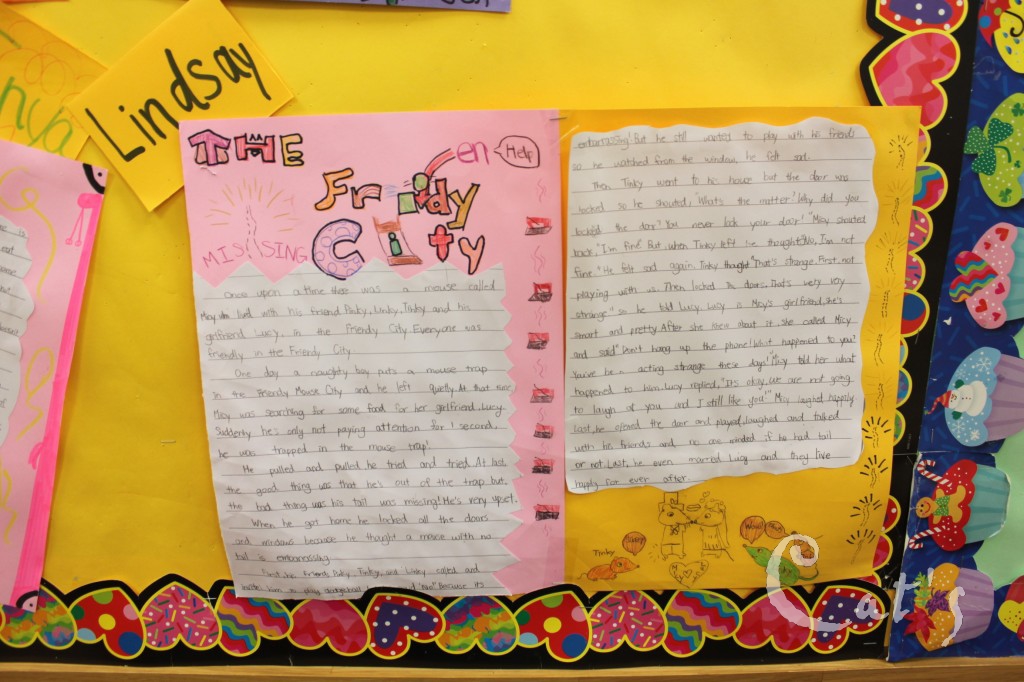 Lindsay
nya
THE
en
Help
Friedy
City
MISSING
Once upon a time there was a mouse called
Micy. lived with his friend Pinky, Linky, Tinky and his
girlfriend Lucy, in the Friendy City. Everyone was
friendly in the Friendy City.
One day a naughty boy puts a mouse trap
in the Friendly Mouse City and he left quietly. At that time
Micy was searching for some food for her girlfriend, Lucy.
Suddenly he's only not paying attention for 1 second,
he was trapped in the mouse trap!
He pulled and pulled, he tried and tried. At last
the good thing was that he's out of the trap but
the bad thing was his tail was missing! He's very upset.
When he got home he locked all the doors
and windows because he thought a mouse with no
tail is embarrassing.
friend, Pinky, Tinky, and Linky called and
him to play "No!" Because it's
embarrassing! But he still wanted to play with his friends
so he watched from the window, he felt sad.
Then Tinky went to his house but the door was
locked so he shouted, "What's the matter! Why did you
locked the door? You never lock your door!" Micy shouted
back, "I'm fine." But when Tinky left he thought, "No, I'm not
fine." He felt sad again. Tinky thought "That's strange. First, not
playing with us. Then locked the doors. That's very very
strange" so he told Lucy. Lucy is Micy's girlfriend, she's
smart and pretty. After she knew about it she called Micy
and said "Don't hang up the phone! What happened to you?
You've be- acting strange these days!" Micy told her what
happened to him. Lucy replied, "It's okay. We are not going
to laugh at you and I still like you." Micy laughed happily.
Last, he opened the door and played, laughed and talked
with his friends and no one minded if he had tail
or not. Last, he even married Lucy and they live
happy for ever after.
Tinky
Wow!
Cat's